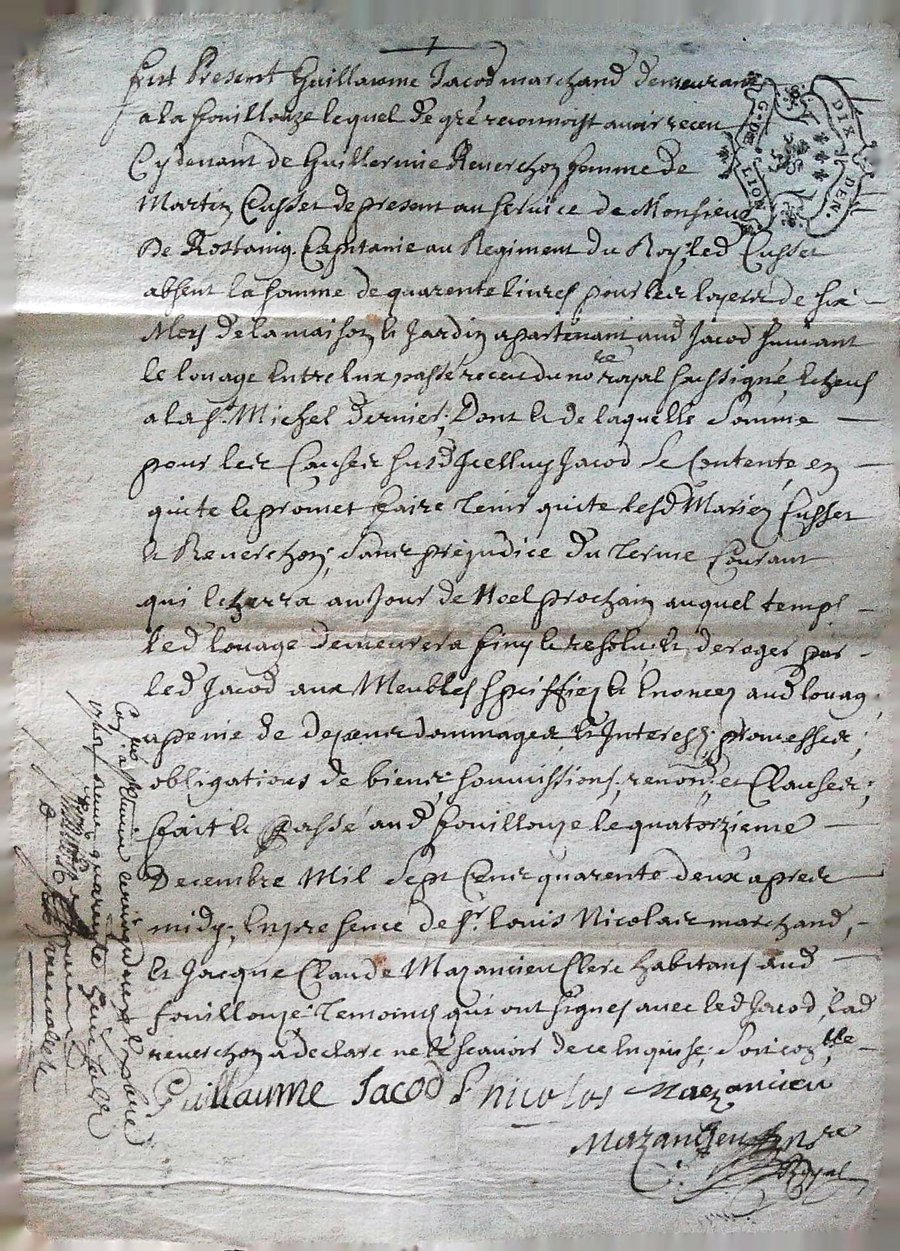 fut Present Guillaume Jacod marchand demeurant
a la fouillouze lequel de gré reconnoist avoir receu
Cydevant de Guillermie Reverchon femme de
Martin Cusset de present au service de Monsieur
De Rostaing Capitanie au Regiment du Roy, led Cusset
absent la somme de quarente livres pour les loyers de six
Moys de la maison & Jardin apartenant aud Jacod suivant
le louage entre eux passé receu du nore royal sussigné, echeus
a la st Michel dernier; Dont & de laquelle somme
pour les causes susd Icelluy Jacod se contente, en
quite & promet faire tenir quite lesd Mariez Cusset
& Reverchon; sans prejudice du terme Courant
qui echerra au Jour de Noel prochain auquel temps
led louage demeurera finy & resolu, & deroger par
led Jacod aux Meubles speciffiez & enoncez aud louage
a peine de depens dommages & Interests; promesses;
obligations de biens, soumissions, renon, et Clauses;
fait & passé aud fouillouze le quatorzieme
Decembre Mil Sept Cens quarente deux apres
midy; En presence de sr. Louis Nicolas marchand,
et Jacque Claude Mazancieu Clerc habitans aud
fouillouze temoins qui ont signes avec led Jacod, lad
reverchon a declare ne le scavoir de ce enquise,
Guillaume Jacod L nicolas Mazancieu
Mazancieu nre
Royal
G. DE LION
DIX DEN.
quarente